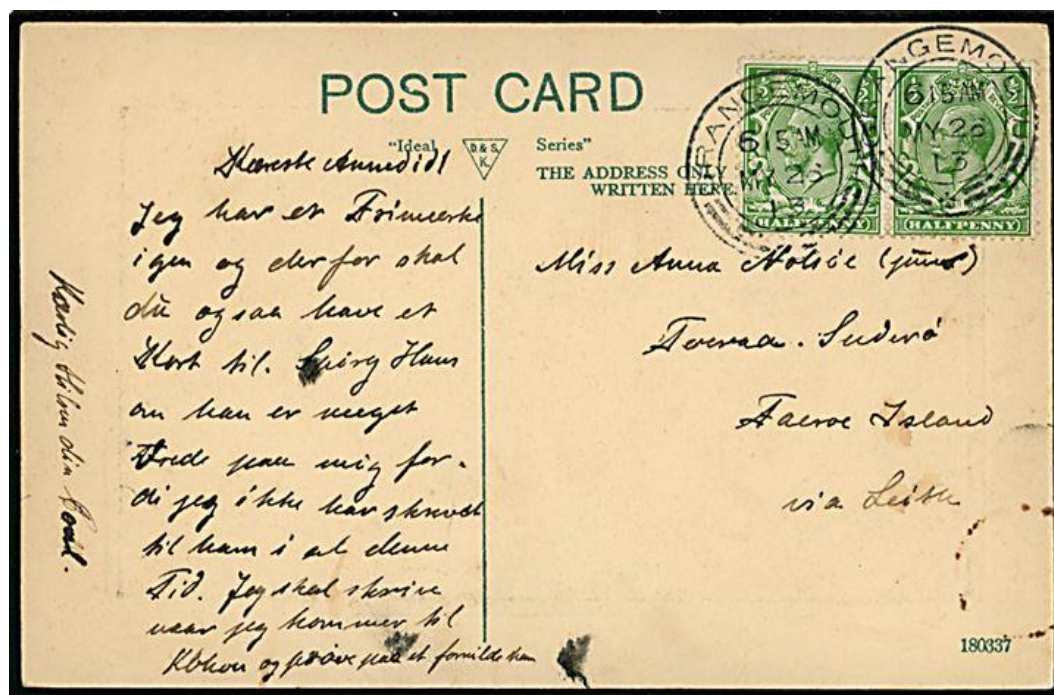 POST CARD
"Ideal D & S. K. Series"
THE ADDRESS ONLY
WRITTEN HERE.
GRANGEMOUTH
615 AM
MY 26
13
HALFPENNY
GRANGEMOUTH
615 AM
MY 26
13
HALFPENNY
Kæreste
Jeg har et Frimærke
igen og derfor skal
du ogsaa have et
Kort til. Spørg Hans
om han er meget
Vrede paa mig for-
di jeg ikke har skrevet
til ham i al denne
Tid. Jeg skal skrive
naar jeg kommer til
Kbhvn og prøve paa at formilde ham
Kærlig Hilsen din
Miss Anna (junior)
Suderö
Faeroe Island
via Leith
180337